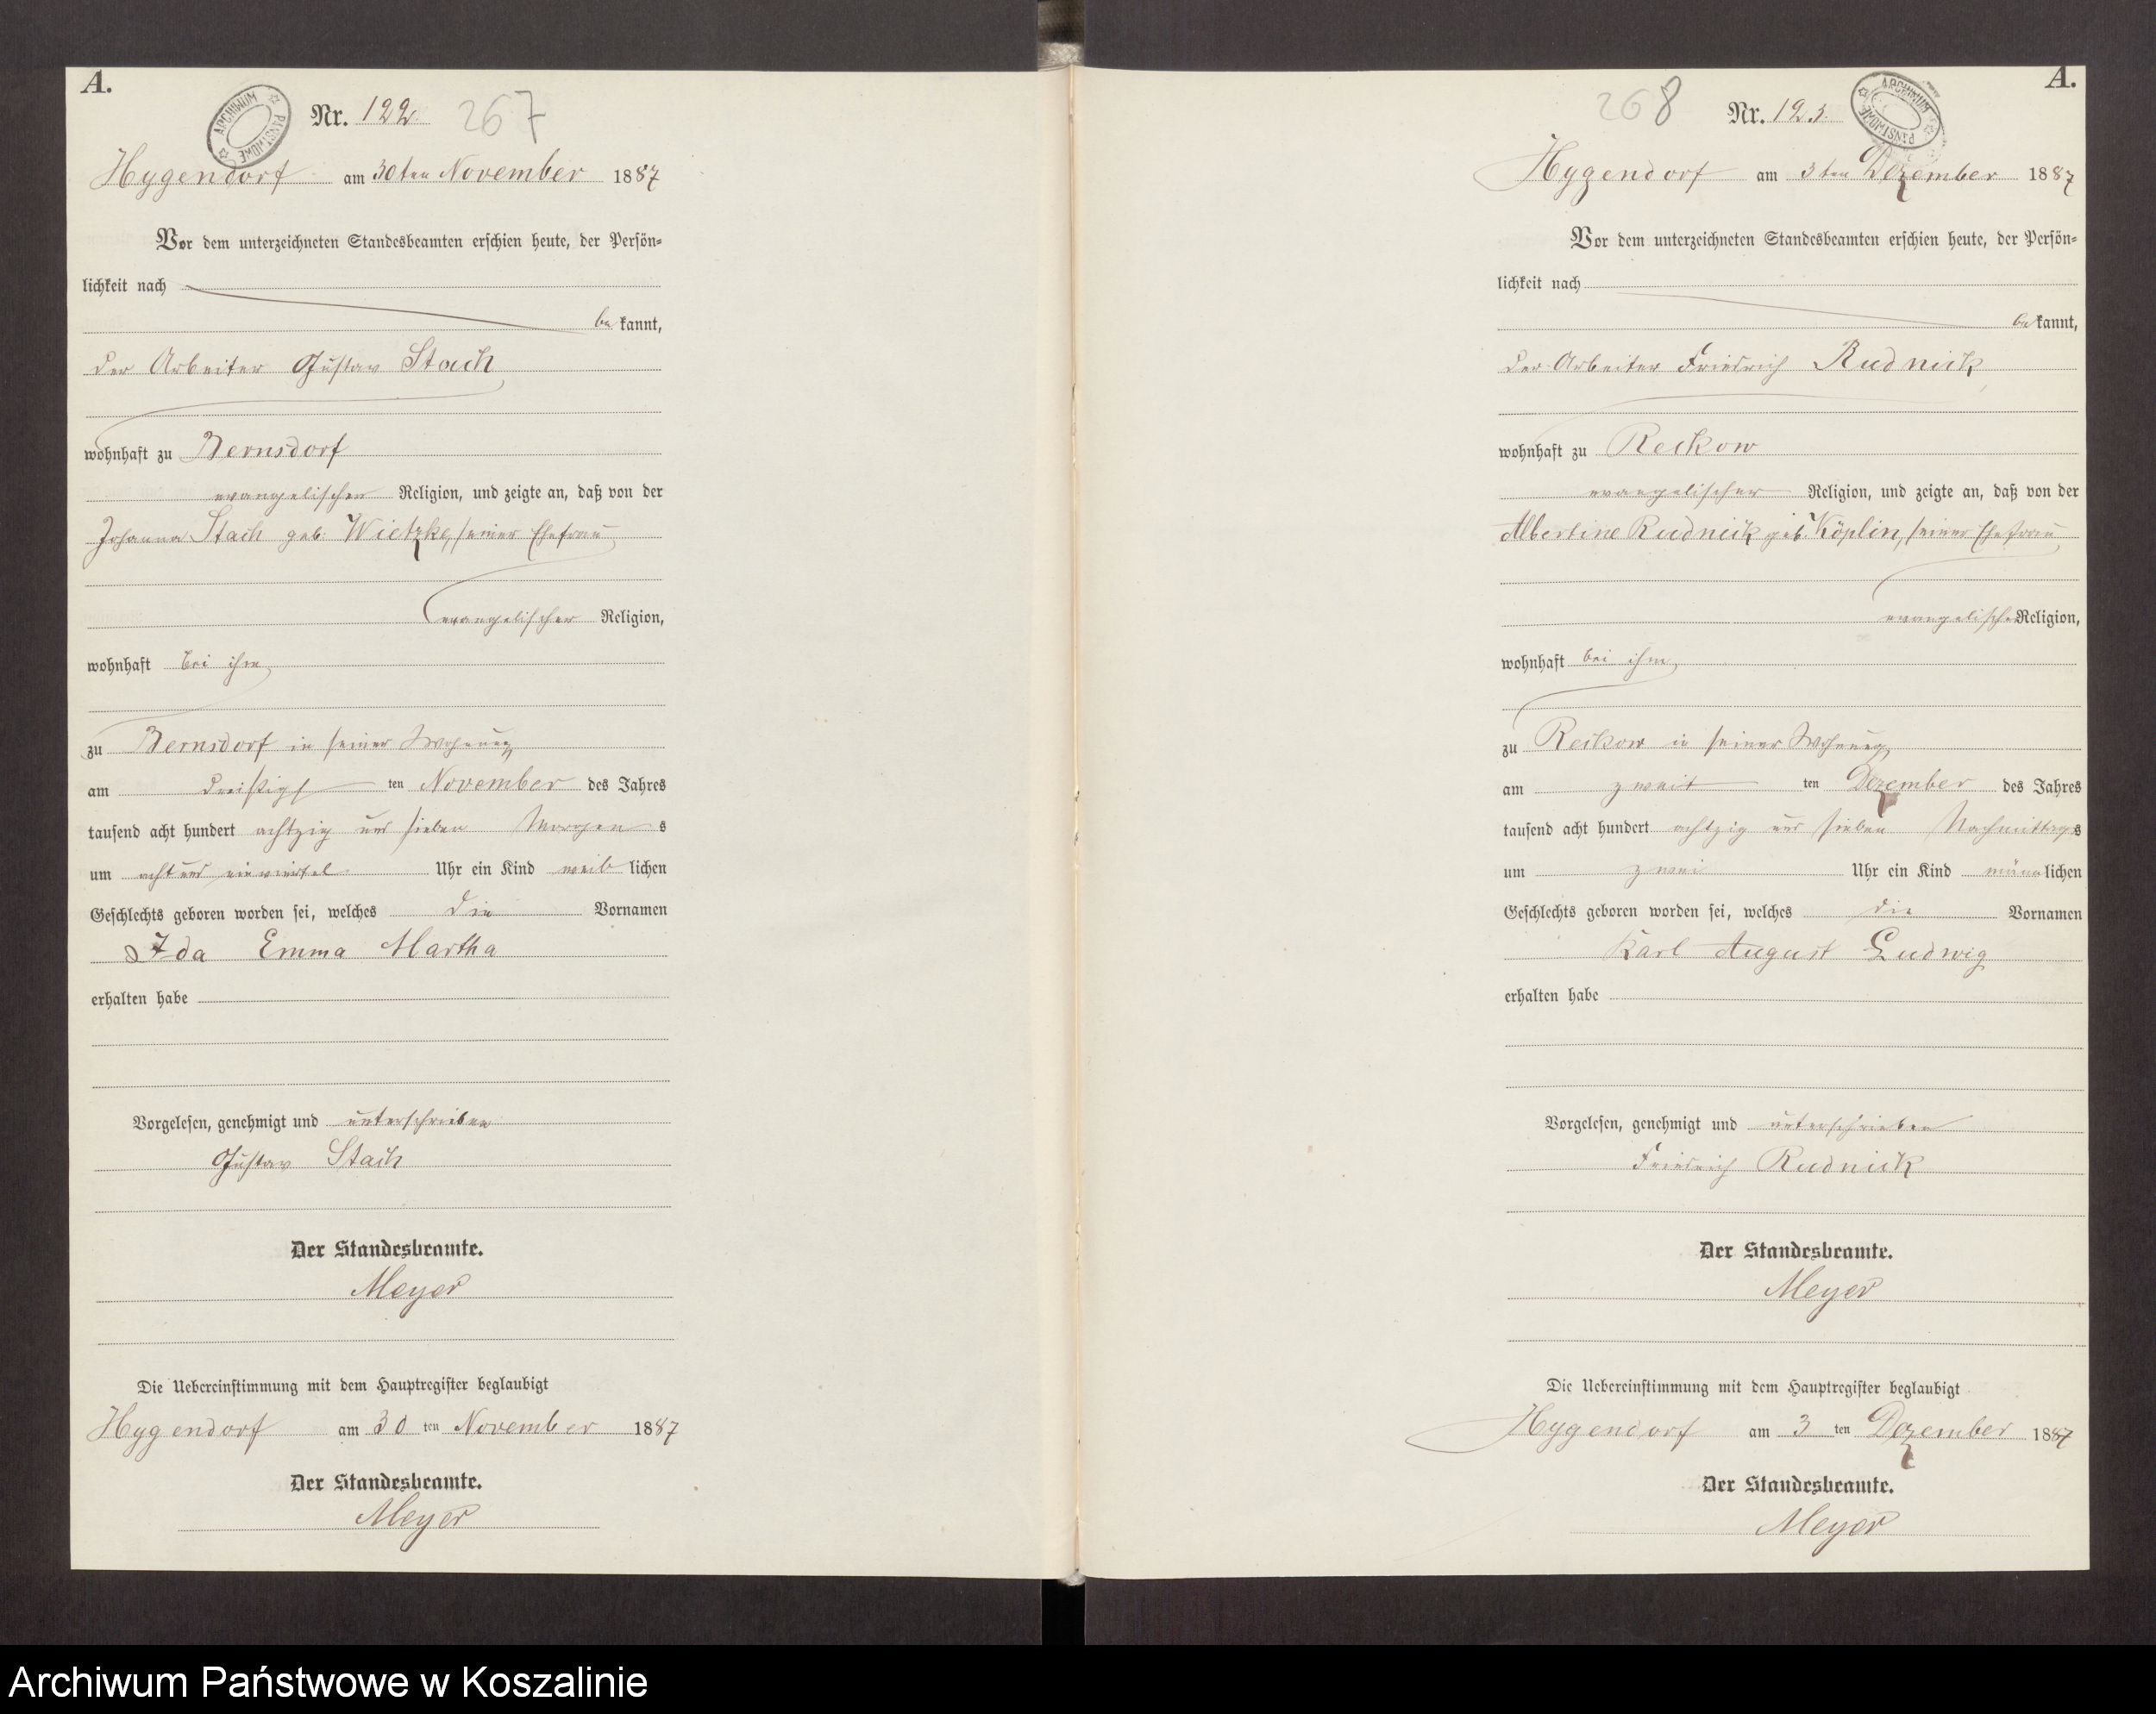 A.
ARCHIWUM PAŃSTWOWE
Nr. 122. 267
Hygendorf am 30ten November 1887
Vor dem unterzeichneten Standesbeamten erschien heute, der Persön-
lichkeit nach
be kannt,
der Arbeiter Gustav Stach
wohnhaft zu Bernsdorf
evangelischer Religion, und zeigte an, daß von der
Johanna Stach geb. Wietzke, seiner Ehefrau
evangelischer Religion,
wohnhaft bei ihm,
zu Bernsdorf in seiner Wohnung,
am dreißigs ten November des Jahres
tausend acht hundert achtzig und sieben Morgen s
um acht und ein viertel Uhr ein Kind weib lichen
Geschlechts geboren worden sei, welches die Vornamen
Ida Emma Martha
erhalten habe
Vorgelesen, genehmigt und unterschrieben
Gustav Stach
Der Standesbeamte.
Meyer
Die Uebereinstimmung mit dem Hauptregister beglaubigt
Hygendorf am 30 ten November 1887
Der Standesbeamte.
Meyer
A.
ARCHIWUM PAŃSTWOWE
268 Nr. 123.
Hygendorf am 3ten Dezember 1887
Vor dem unterzeichneten Standesbeamten erschien heute, der Persön-
lichkeit nach
be kannt,
der Arbeiter Friedrich Rudnick
wohnhaft zu Reckow
evangelischer Religion, und zeigte an, daß von der
Albertine Rudnick geb. Köplin, seiner Ehefrau
evangelischer Religion,
wohnhaft bei ihm,
zu Reckow in seiner Wohnung,
am zweit ten Dezember des Jahres
tausend acht hundert achtzig und sieben Nachmittags
um zwei Uhr ein Kind männ lichen
Geschlechts geboren worden sei, welches die Vornamen
Karl August Ludwig
erhalten habe
Vorgelesen, genehmigt und unterschrieben
Friedrich Rudnick
Der Standesbeamte.
Meyer
Die Uebereinstimmung mit dem Hauptregister beglaubigt
Hygendorf am 3 ten Dezember 1887
Der Standesbeamte.
Meyer
Archiwum Państwowe w Koszalinie